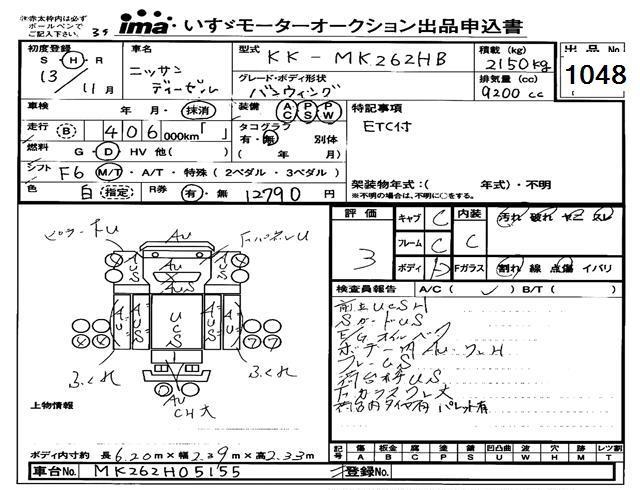 ※赤太枠内は必ず
ボールペンで
ご記入下さい。
39
ima いすゞモーターオークション出品申込書
初度登録
S・H・R
13
11月
車名
ニッサン
ディーゼル
型式
KK-MK262HB
グレード・ボディ形状
バンウイング
積載(kg)
2150kg
排気量(cc)
9200cc
出品No
1048
車検 年・月・抹消
装備 AC PS PW
特記事項
ETC付
走行 B 406,000km「 」
タコグラフ
有・無 別体
( 年 月)
燃料 G・D・HV 他( )
シフト F6 M/T・A/T・特殊(2ペダル・3ペダル)
架装物年式:( 年式)・不明
※不明の場合は、不明に○をする。
色 白 指定 R券 有・無 12790円
評価
3
キャブ C
フレーム C
ボディ D
内装
C
Fガラス
汚れ 破れ ヤニ スレ
割れ 線 点傷 イバリ
検査員報告 A/C( ✓ ) B/T( )
前上UCSH
SガードUS
E/Gオイル
ボデー内AU
フレームUS
荷台US
荷台内タイヤ有 パレット有
AU
AU
AUS
AUS
AUS
AUS
UCS
AU
CH大
上物情報
ボディ内寸約 長6.20m×幅2.39m×高2.33m
記号 傷 A 板金 B 腐 C 塗 P 錆 S 凹凸曲 U 波 W 穴 H 跡 M レツ割 T
車台No. MK262H05155
登録No.